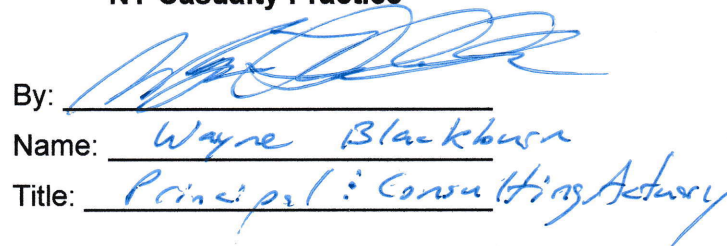 NY Casualty Practice
By:
Name: Wayne Blackburn
Title: Principal : Consulting Actuary